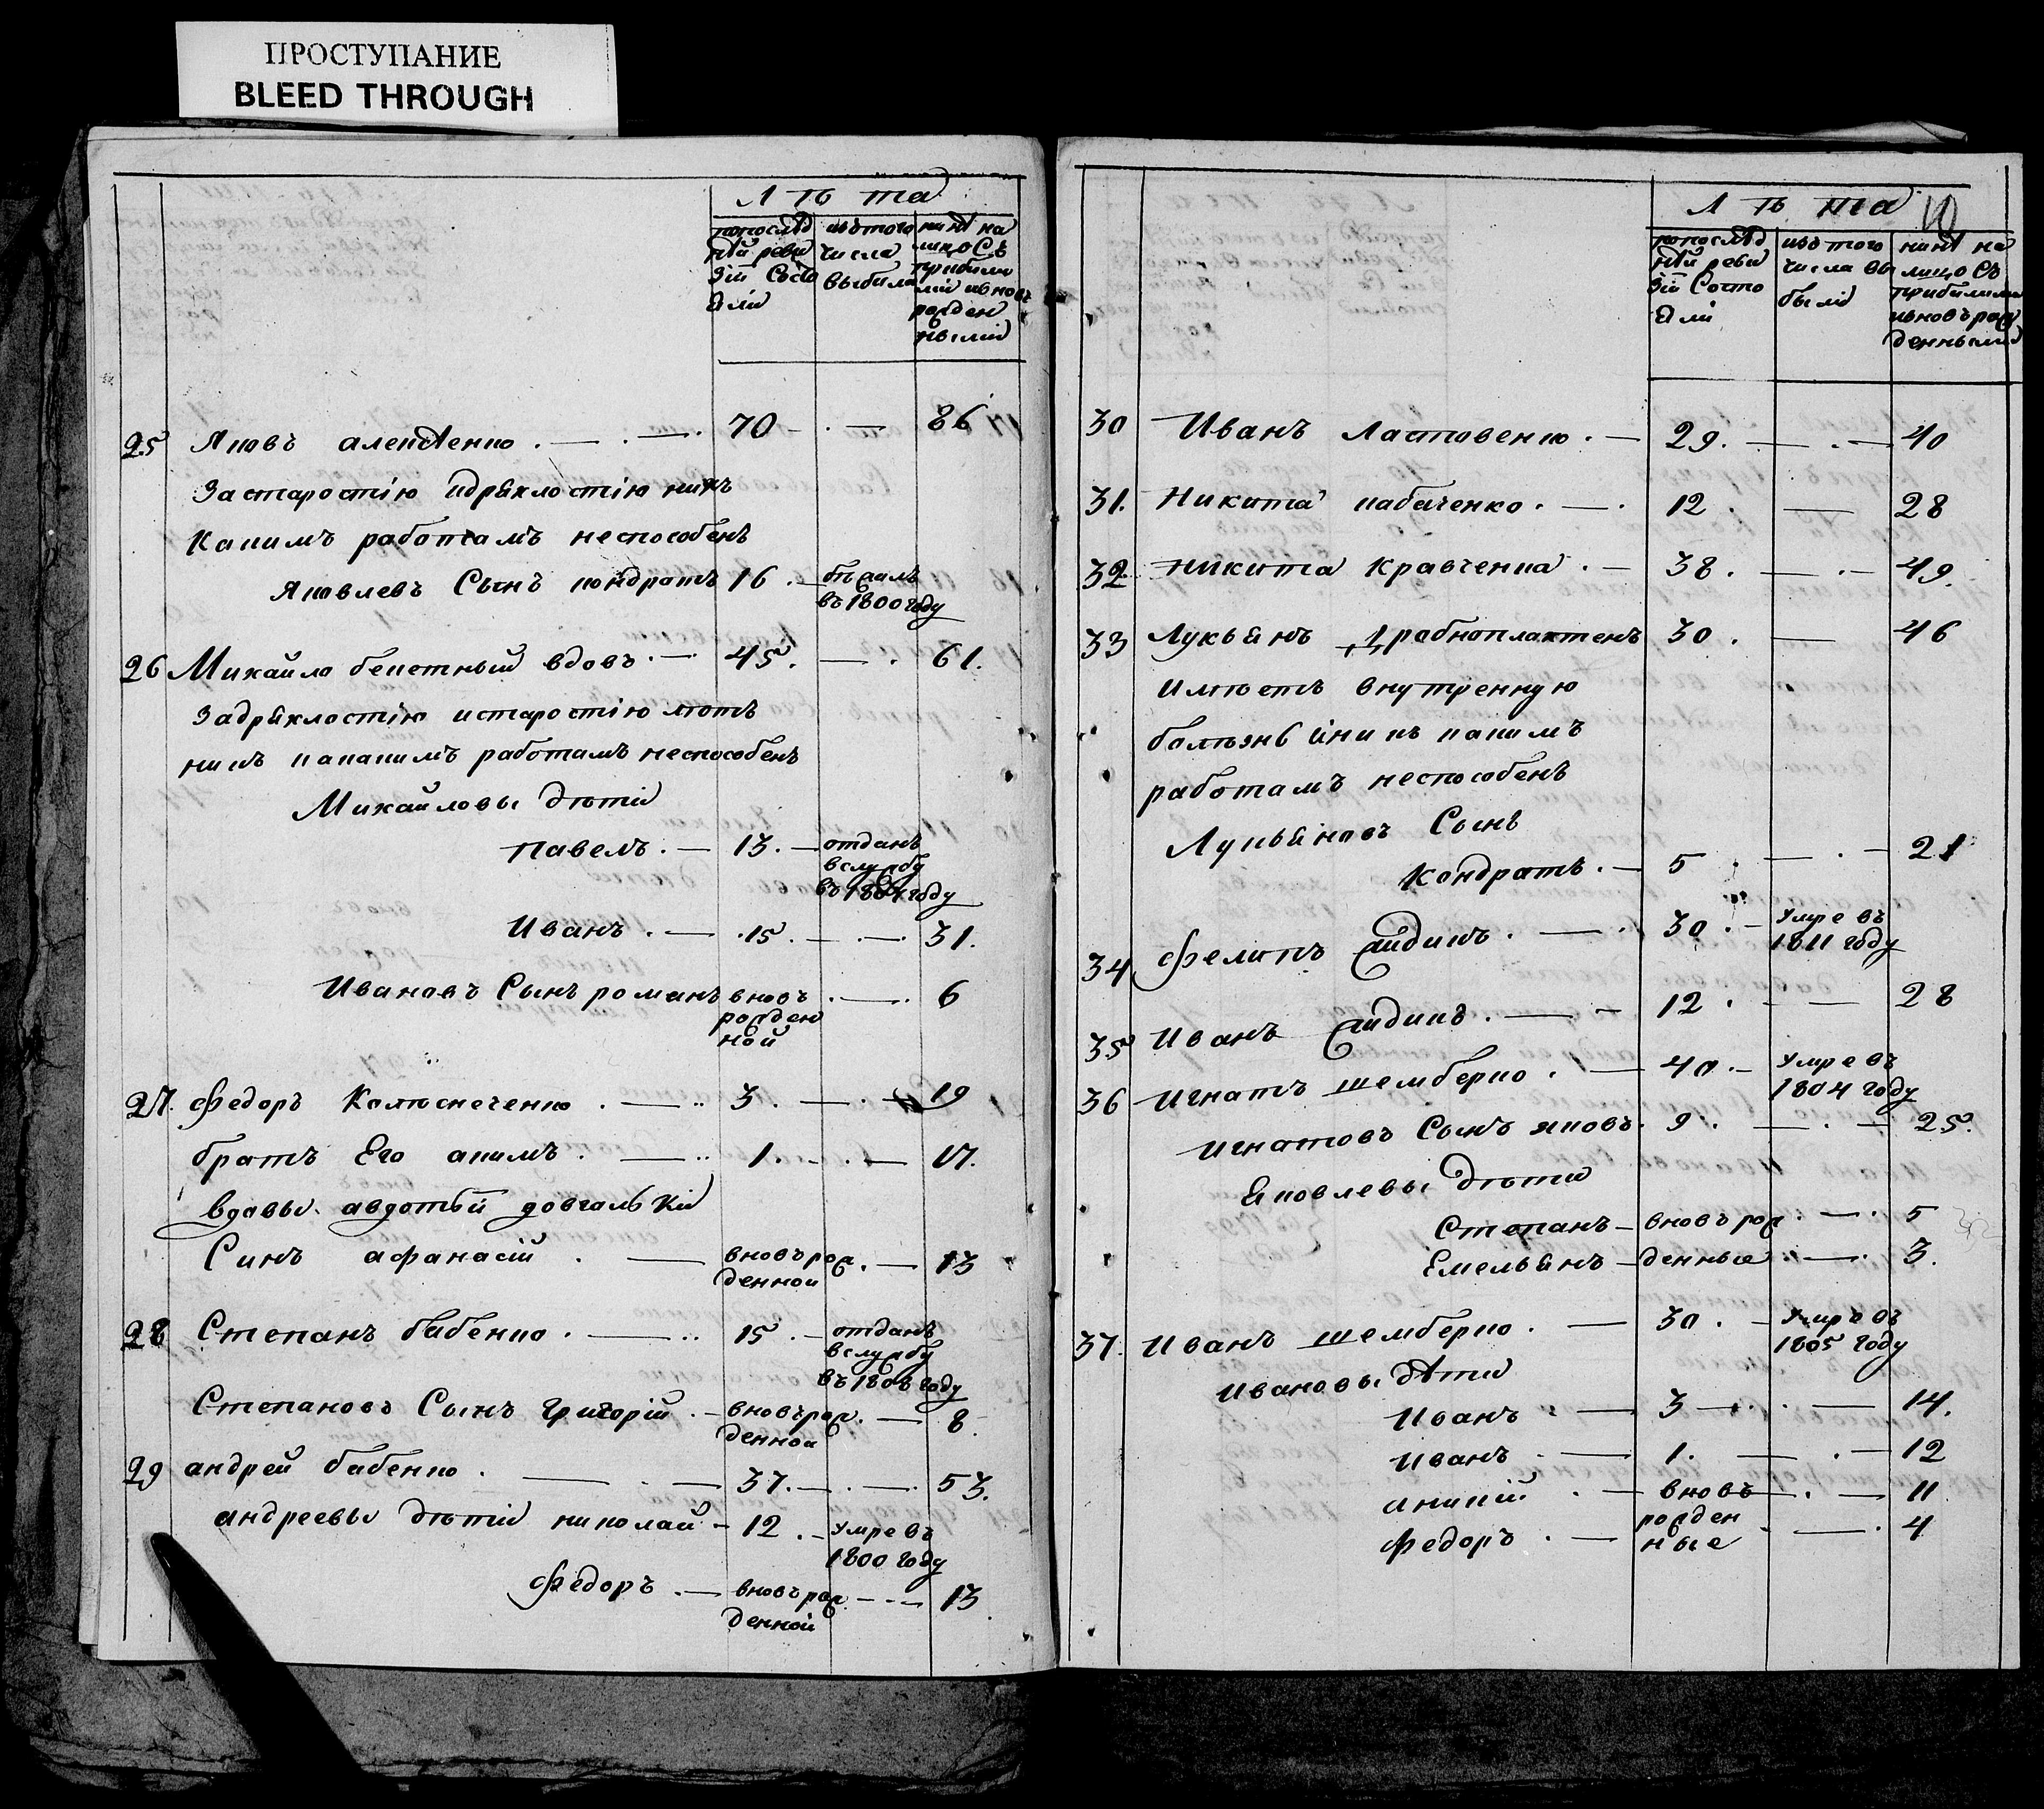 ПРОСТУПАНИЕ
BLEED THROUGH
Лѣта
попослѣд изътого нинѣ на
ней реви числа лицо съ
зіи Состо выбыло прибыли
яли ми ивновь
рожден
ными
25 Яковъ алексѣенко 70 86
Застаростію идряхлостію никъ
Какимъ работамъ неспособенъ
Яковлевъ Сынъ кондратъ 16 бѣжалъ
въ 1800 году
26 Михайло вдовъ 45. 61.
Задряхлостію истаростію тотъ
никъ какимъ работамъ неспособенъ
Михайловы дѣти
павелъ 13. отданъ
вслужбу
въ 1804 году
Иванъ 15. 31.
Ивановъ Сынъ романъ вновь 6
рожден
ной
27. Федоръ Колѣсниченко 3. 19
братъ Его акимъ 1. 17.
вдовы авдотьи довгальки
Синъ афанасій вновьрож 13
денной
28 Степанъ бабенко 15 отданъ
вслужбу
въ 1808 году
Степановъ Сынъ григорій вновьрож 8
денной
29 андрей бабенко 37. 53.
андреевы дѣти николай 12 умре въ
1800 году
Федоръ вновьрож 13
денной
Лѣта 10
попослѣд изътого нинѣ на
ней реви числа вы лицо съ
зіи Состо были прибылими
яли ивновьрож
денными
30 Иванъ Ластовенко 29. 40
31. Никита кабаченко 12 28
32. Никита Кравченка 38. 49.
33 Лукьянъ Драбноплахтенъ 30. 46
имѣетъ внутренную
болѣзнь ини къ какимъ
работамъ неспособенъ
Лукьяновъ Сынъ
Кондратъ 5 21
34 Фелипъ 30. умре въ
1811 году
35 Иванъ 12. 28
36 Игнатъ шемберко 40. умре въ
1804 году
Игнатовъ Сынъ яковъ 9. 25.
Яковлевы дѣти
Степанъ вновьрож 5
Емельянъ денные 3.
37. Иванъ шемберко 30. умре въ
1805 году
Ивановы дѣти
Иванъ 3 14.
Иванъ 1. 12
вновь 11
рожден
Федоръ ные 4